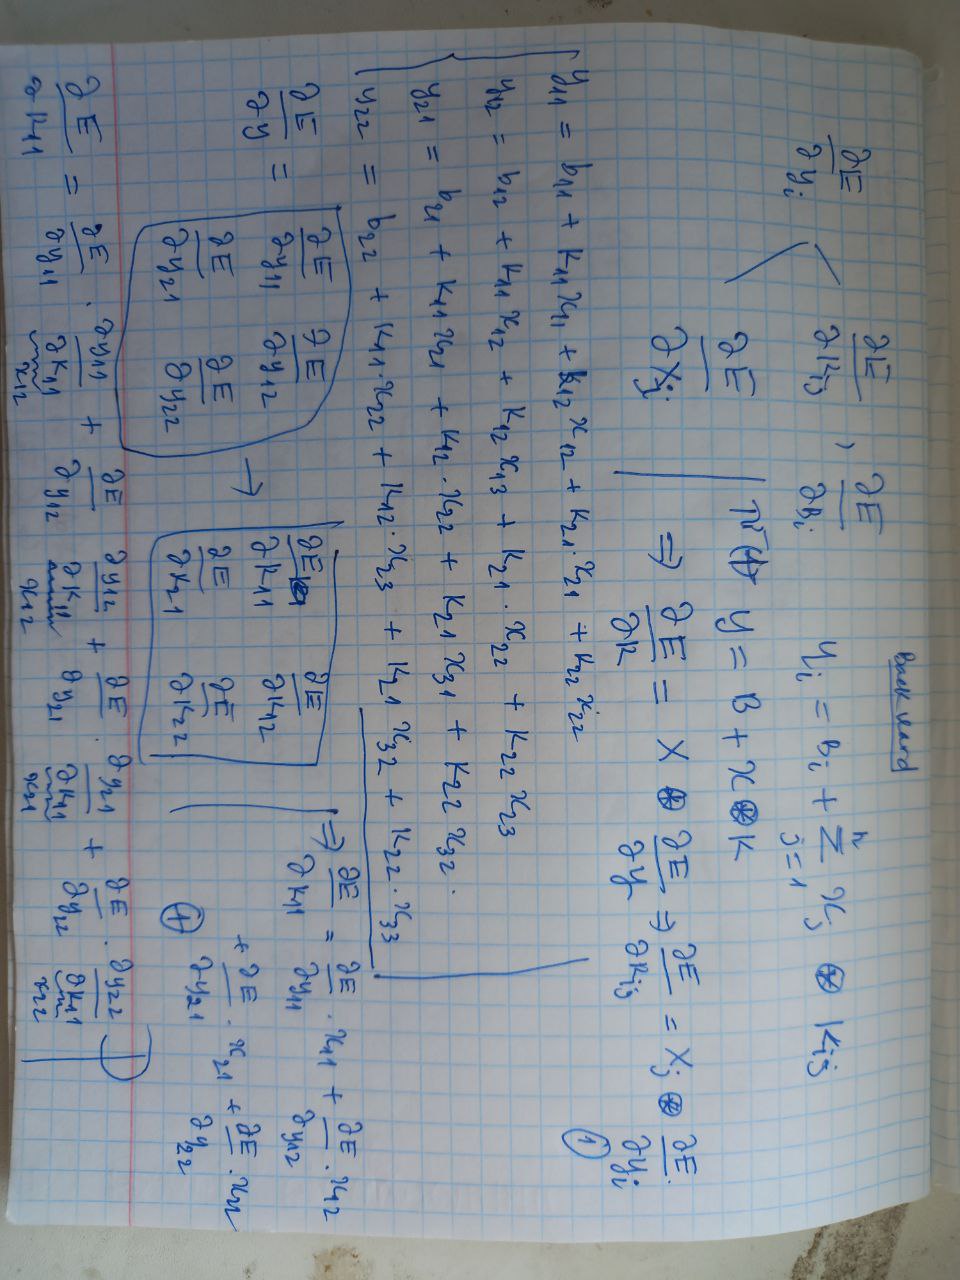 Backward
∂E/∂yᵢ < ∂E/∂Kᵢⱼ , ∂E/∂Bᵢ
yᵢ = Bᵢ + Σⱼ₌₁ⁿ xⱼ ⊛ Kᵢⱼ
∂E/∂Xⱼ
y = B + x ⊛ K
⇒ ∂E/∂K = X ⊛ ∂E/∂y ⇒ ∂E/∂Kᵢⱼ = Xⱼ ⊛ ∂E/∂yᵢ
①
y₁₁ = b₁₁ + K₁₁x₁₁ + K₁₂x₁₂ + K₂₁·x₂₁ + K₂₂x₂₂
y₁₂ = b₁₂ + K₁₁x₁₂ + K₁₂x₁₃ + K₂₁·x₂₂ + K₂₂x₂₃
y₂₁ = b₂₁ + K₁₁x₂₁ + K₁₂·x₂₂ + K₂₁x₃₁ + K₂₂x₃₂.
y₂₂ = b₂₂ + K₁₁·x₂₂ + K₁₂·x₂₃ + K₂₁x₃₂ + K₂₂·x₃₃
∂E/∂y = [∂E/∂y₁₁ ∂E/∂y₁₂
∂E/∂y₂₁ ∂E/∂y₂₂]
→ [∂E/∂K₁₁ ∂E/∂K₁₂
∂E/∂K₂₁ ∂E/∂K₂₂]
⇒ ∂E/∂K₁₁ = ∂E/∂y₁₁·x₁₁ + ∂E/∂y₁₂·x₁₂
+ ∂E/∂y₂₁·x₂₁ + ∂E/∂y₂₂·x₂₂
⊕
∂E/∂K₁₁ = ∂E/∂y₁₁·∂y₁₁/∂K₁₁ + ∂E/∂y₁₂ ∂y₁₂/∂K₁₁ + ∂E/∂y₂₁·∂y₂₁/∂K₁₁ + ∂E/∂y₂₂·∂y₂₂/∂K₁₁
x₁₂ x₁₂ x₂₁ x₂₂